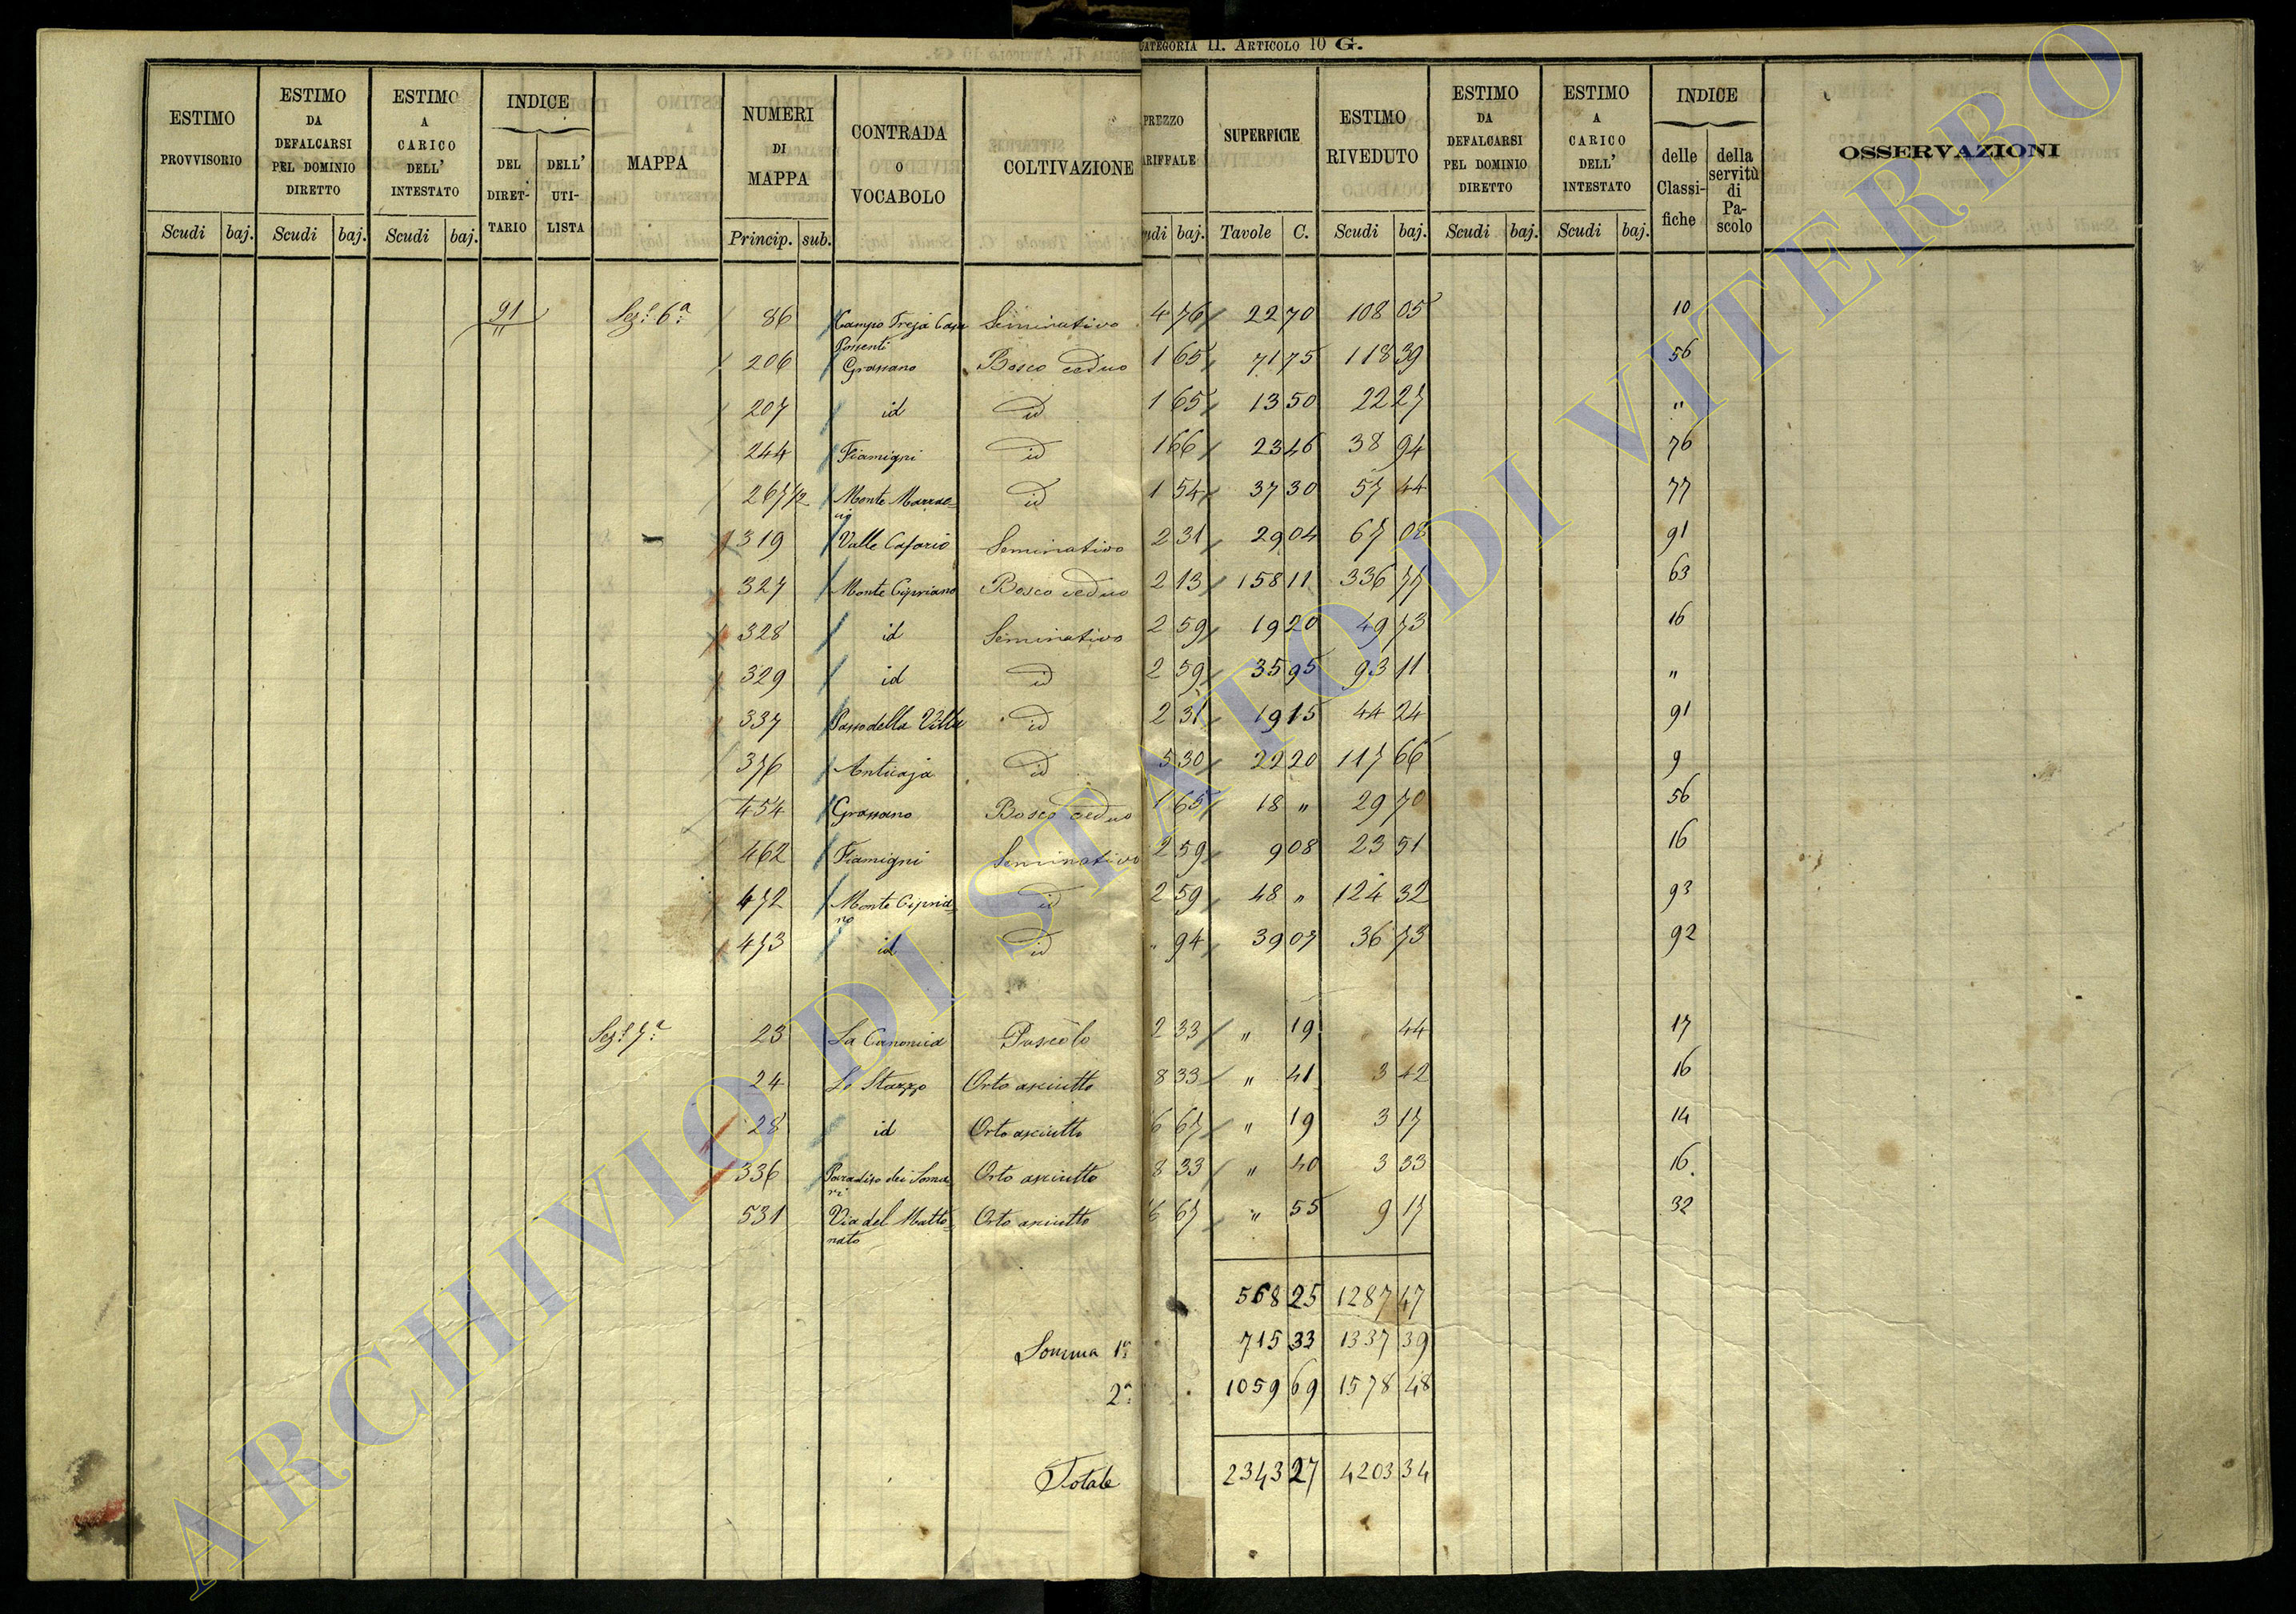 CATEGORIA II. ARTICOLO 10 G.
ESTIMO PROVVISORIO Scudi baj.
ESTIMO DA DEFALCARSI PEL DOMINIO DIRETTO Scudi baj.
ESTIMO A CARICO DELL' INTESTATO Scudi baj.
INDICE DEL DIRETTARIO DELL' UTILISTA
MAPPA
NUMERI DI MAPPA Princip. sub.
CONTRADA O VOCABOLO
COLTIVAZIONE
PREZZO ARIFFALE udi baj.
SUPERFICIE Tavole C.
ESTIMO RIVEDUTO Scudi baj.
ESTIMO DA DEFALCARSI PEL DOMINIO DIRETTO Scudi baj.
ESTIMO A CARICO DELL' INTESTATO Scudi baj.
INDICE delle Classifiche della servitù di Pascolo
OSSERVAZIONI
91 Sez.e 6a 86 Campo Treja Casa Possenti Seminativo 4 76 22 70 108 05 10
206 Grassano Bosco ceduo 1 65 71 75 118 39 56
207 id id 1 65 13 50 22 27 "
244 Fiamigni id 1 66 23 46 38 94 76
267/2 Monte Marra= id 1 54 37 30 57 44 77
319 Valle Cafario Seminativo 2 31 29 04 67 08 91
327 Monte Cipriano Bosco ceduo 2 13 158 11 336 77 63
328 id Seminativo 2 59 19 20 49 73 16
329 id id 2 59 35 95 93 11 "
337 Passo della Villa id 2 31 19 15 44 24 91
376 Anticaja id 5 30 22 20 117 66 9
454 Grassano Bosco ceduo 1 65 18 " 29 70 56
462 Fiamigni Seminativo 2 59 9 08 23 51 16
472 Monte Cipria=no id 2 59 48 " 124 32 93
473 id id " 94 39 07 36 73 92
Sez.e 7a 23 La Canonica Pascolo 2 33 " 19 44 17
24 Lo Stazzo Orto asciutto 8 33 " 41 3 42 16
28 id Orto asciutto 6 67 " 19 3 17 14
336 Paradiso dei Somari Orto asciutto 8 33 " 40 3 33 16
531 Via del Matto=nato Orto asciutto 6 67 " 55 9 17 32
568 25 1287 47
Somma 1a 715 33 1337 39
2a 1059 69 1578 48
Totale 2343 27 4203 34
ARCHIVIO DI STATO DI VITERBO